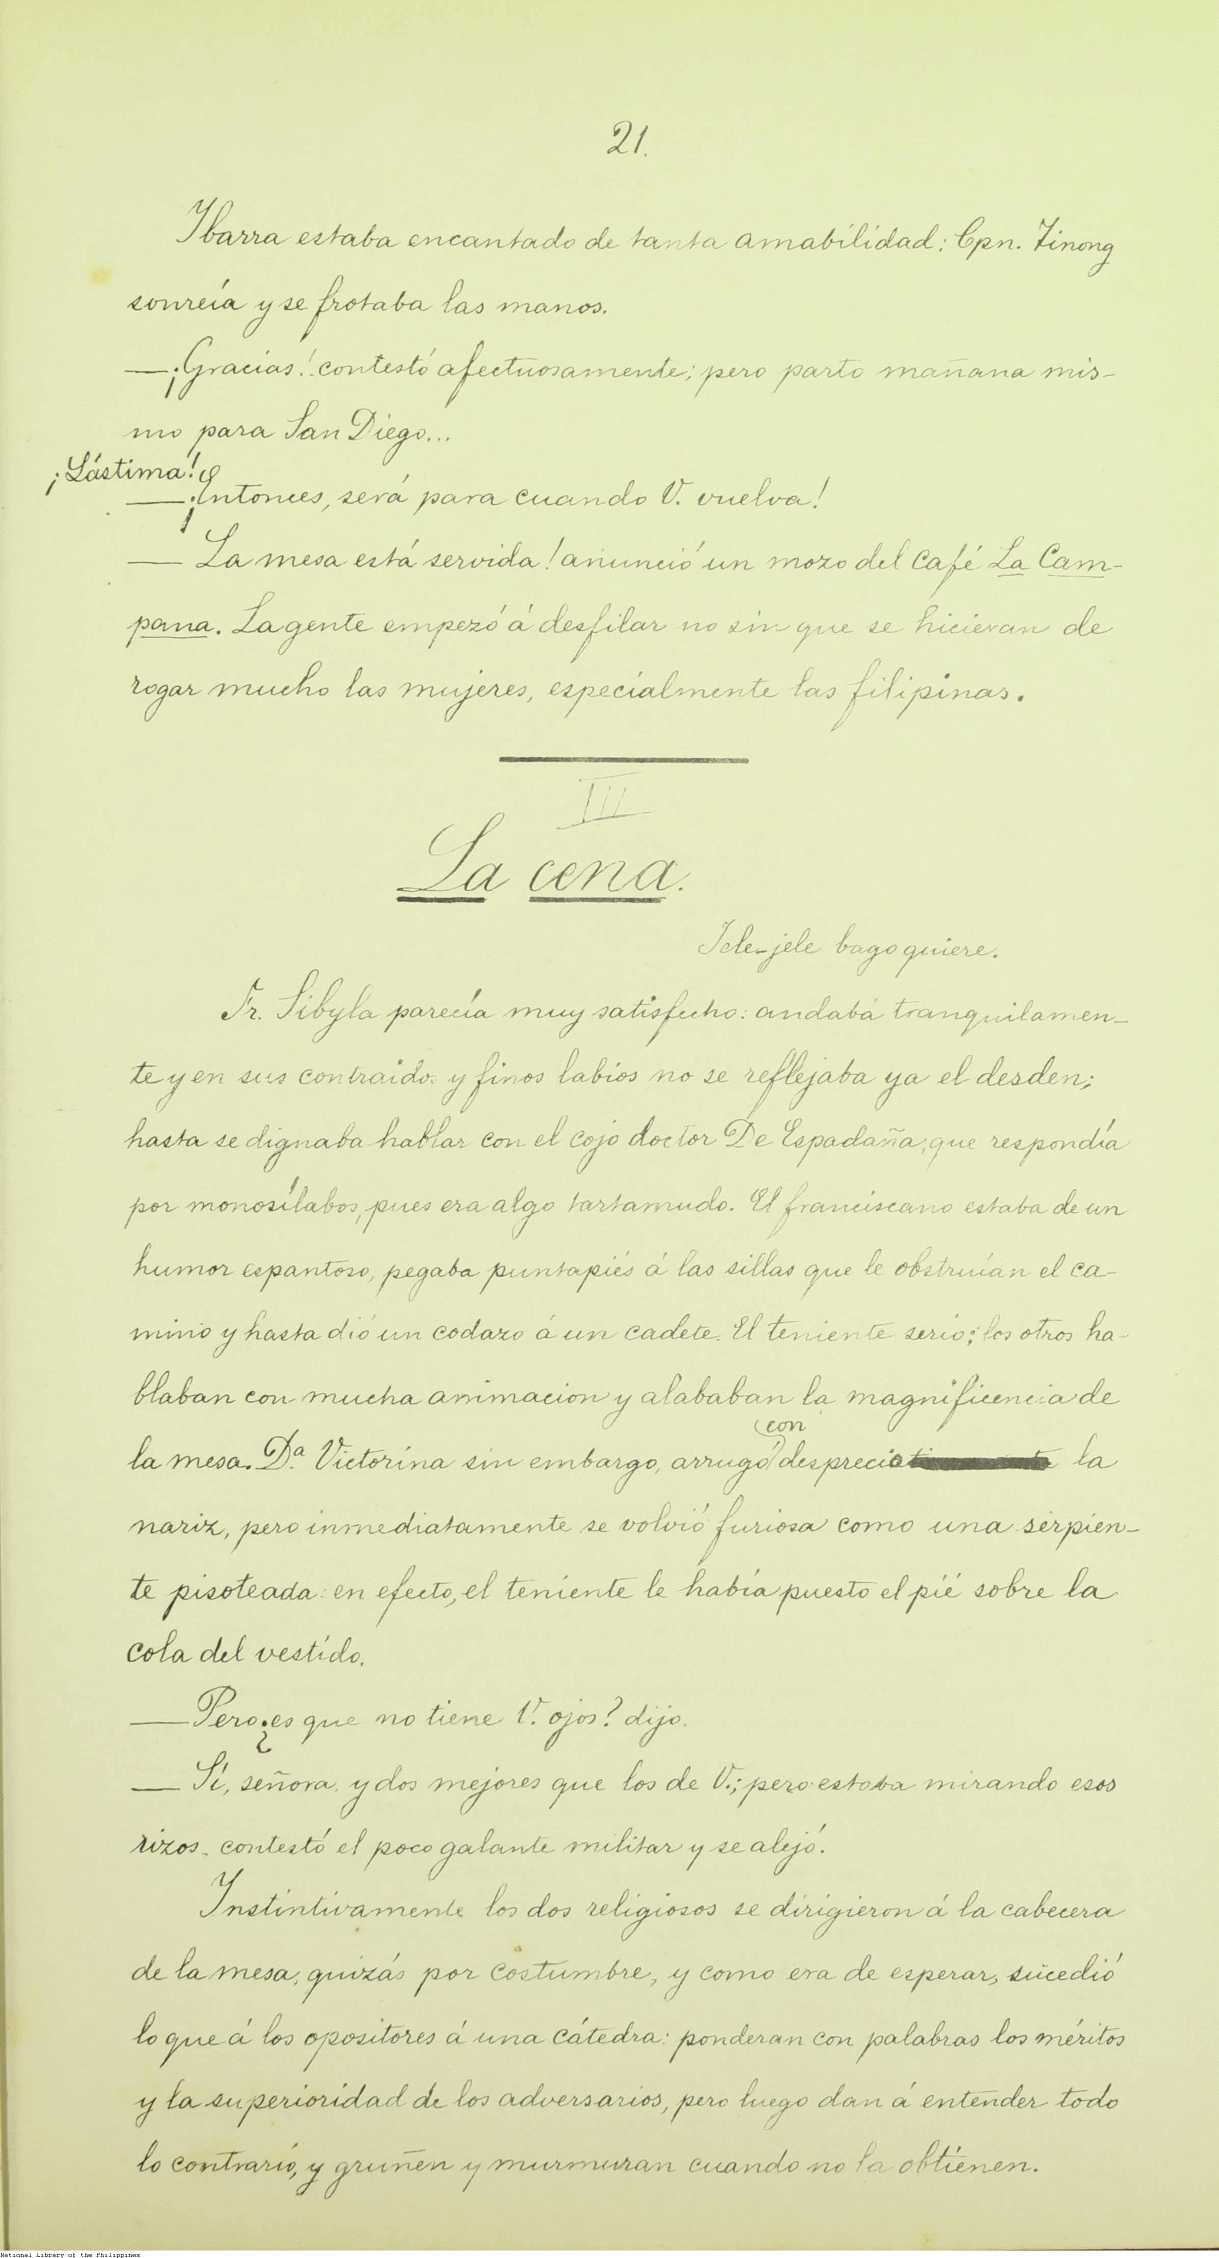 21.
Ibarra estaba encantado de tanta amabilidad: Cpn. Tinong
sonreía y se frotaba las manos.
—¡Gracias! contestó afectuosamente; pero parto mañana mis-
mo para San Diego...
¡Lástima!
—¡Entonces, será para cuando V. vuelva!
— La mesa está servida! anunció un mozo del café La Cam-
pana. La gente empezó á desfilar no sin que se hicieran de
rogar mucho las mujeres, especialmente las filipinas.
III
La cena.
Jele-jele bago quiere.
Fr. Sibyla parecía muy satisfecho: andaba tranquilamen-
te y en sus contraidos y finos labios no se reflejaba ya el desden;
hasta se dignaba hablar con el cojo doctor De Espadaña, que respondía
por monosílabos, pues era algo tartamudo. El franciscano estaba de un
humor espantoso, pegaba puntapiés á las sillas que le obstruían el ca-
mino y hasta dió un codazo á un cadete. El teniente serio; los otros ha-
blaban con mucha animacion y alababan la magnificencia de
con
la mesa. Dª. Victorina sin embargo, arrugó desprecio la
nariz, pero inmediatamente se volvió furiosa como una serpien-
te pisoteada: en efecto, el teniente le había puesto el pié sobre la
cola del vestido.
— Pero ¿es que no tiene V. ojos? dijo.
— Sí, señora, y dos mejores que los de V.; pero estaba mirando esos
rizos, contestó el poco galante militar y se alejó.
Instintivamente los dos religiosos se dirigieron á la cabecera
de la mesa, quizás por costumbre, y como era de esperar, sucedió
lo que á los opositores á una cátedra: ponderan con palabras los méritos
y la superioridad de los adversarios, pero luego dan á entender todo
lo contrario, y gruñen y murmuran cuando no la obtienen.
National Library of the Philippines